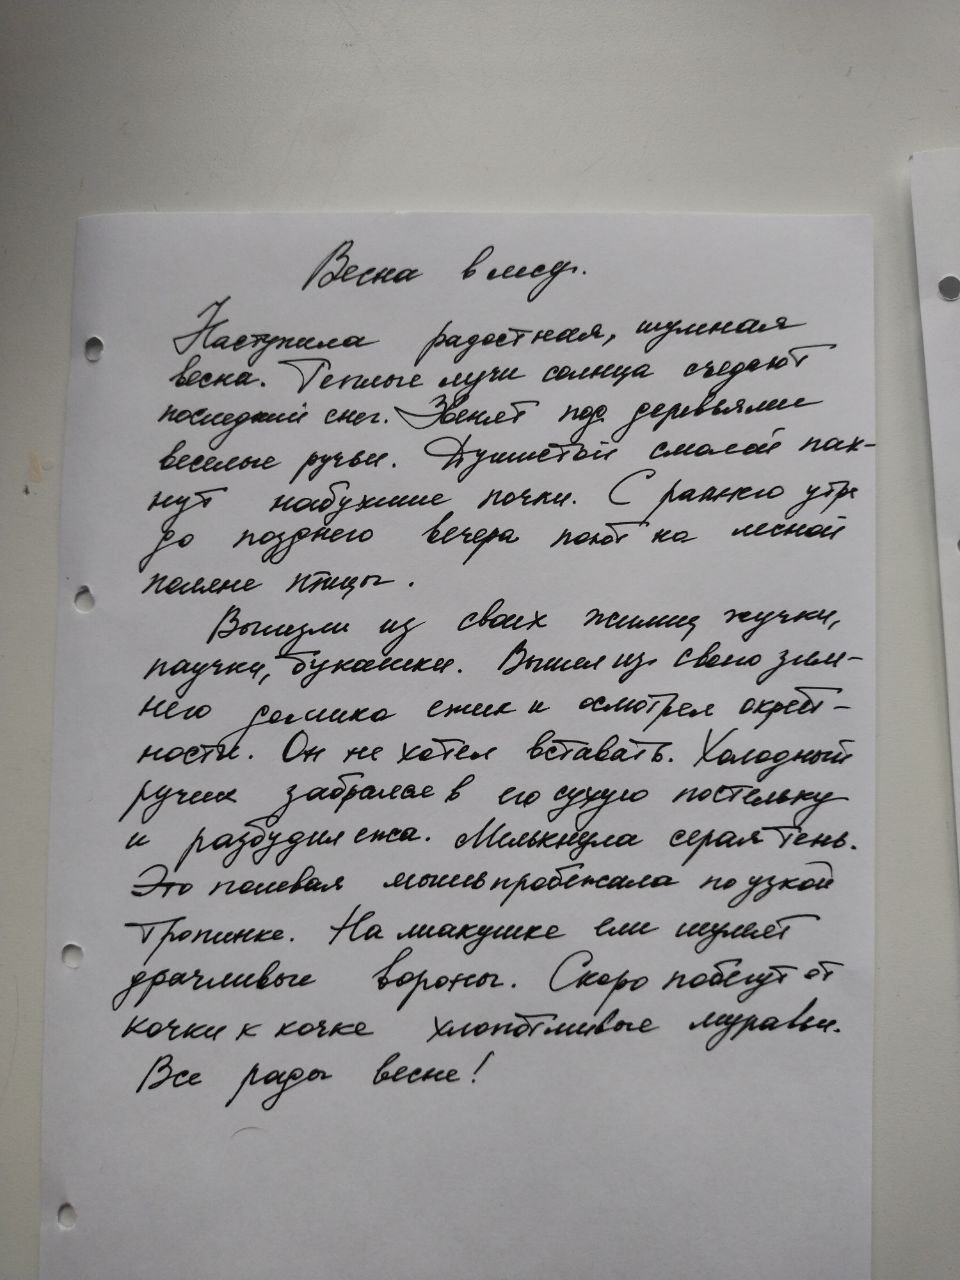 Весна в лесу.
Наступила радостная, шумная
весна. Теплые лучи солнца съедают
последний снег. Звенят под деревьями
веселые ручьи. Душистой смолой пах-
нут набухшие почки. С раннего утра
до позднего вечера поют на лесной
поляне птицы.
Вылезли из своих жилищ жучки,
паучки, букашки. Вышел из своего зим-
него домика ежик и осмотрел окрест-
ности. Он не хотел вставать. Холодный
ручеек забрался в его сухую постельку
и разбудил ежа. Мелькнула серая тень.
Это полевая мышь пробежала по узкой
тропинке. На макушке ели шумят
драчливые вороны. Скоро побегут от
кочки к кочке хлопотливые муравьи.
Все рады весне!